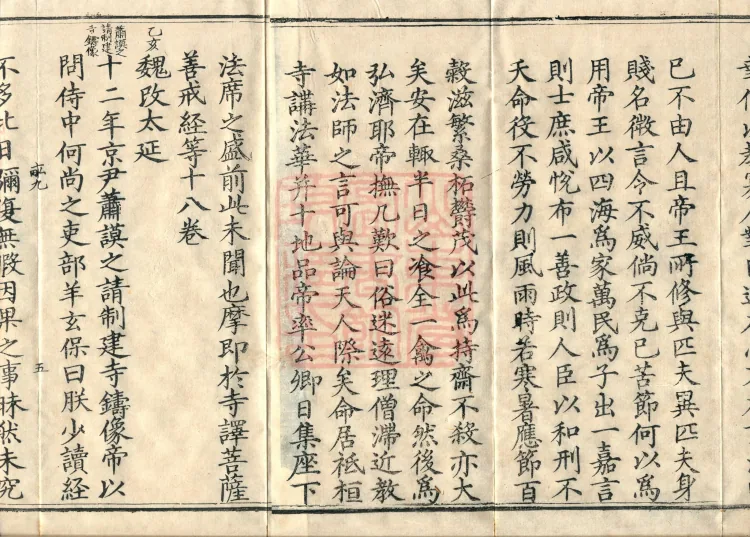 已不由人且帝王所修與匹夫異匹夫身
賤名微言令不威倘不克已苦節何以爲
用帝王以四海爲家萬民爲子出一嘉言
則士庶咸悅布一善政則人臣以和刑不
夭命役不勞力則風雨時若寒暑應節百
穀滋繁桑柘欝茂以此爲持齋不殺亦大
矣安在輟半日之飡全一禽之命然後爲
弘濟耶帝撫几歎曰俗迷遠理僧滯近教
如法師之言可與論天人際矣命居祇桓
寺講法華并十地品帝率公卿日集座下
法席之盛前此未聞也摩即於寺譯菩薩
善戒経等十八卷
乙亥
魏改太延
蕭謨之
請制建
寺鑄像
十二年京尹蕭謨之請制建寺鑄像帝以
問侍中何尚之吏部羊玄保曰朕少讀経
九
五
不多比日彌復無暇因果之事昧然未究